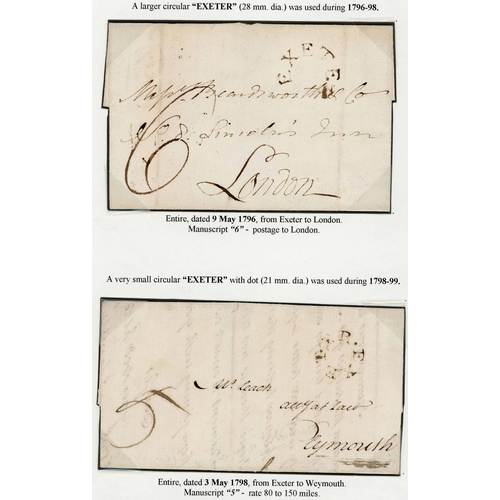 A larger circular “EXETER” (28 mm. dia.) was used during 1796-98.
EXETER
Beardsworth & Co
No. 8 Lincoln's Inn
6
London
Entire, dated 9 May 1796, from Exeter to London.
Manuscript “6” - postage to London.
A very small circular “EXETER” with dot (21 mm. dia.) was used during 1798-99.
Mr. Leach
att'y at Law
5
Entire, dated 3 May 1798, from Exeter to Weymouth.
Manuscript “5” - rate 80 to 150 miles.